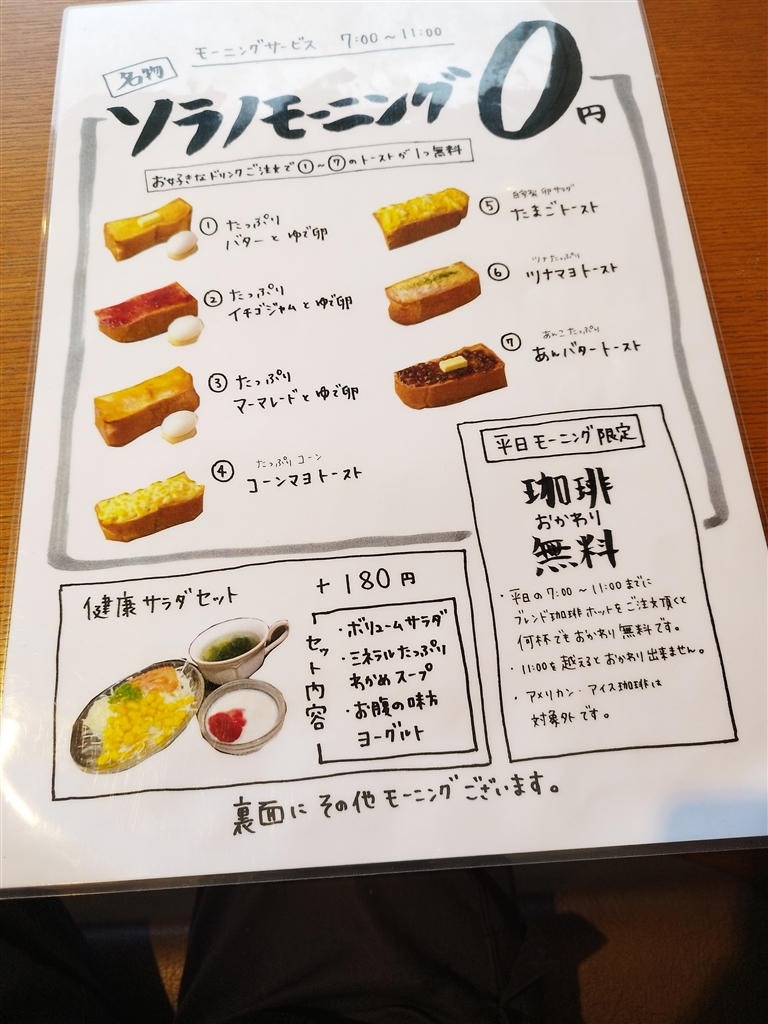 モーニングサービス 7:00〜11:00
名物
ソラノモーニング 0円
お好きなドリンクご注文で①〜⑦のトーストが1つ無料
① たっぷり
バターとゆで卵
② たっぷり
イチゴジャムとゆで卵
③ たっぷり
マーマレードとゆで卵
④ たっぷりコーン
コーンマヨトースト
⑤ 自家製 卵サラダ
たまごトースト
⑥ ツナたっぷり
ツナマヨトースト
⑦ あんこたっぷり
あんバタートースト
平日モーニング限定
珈琲
おかわり
無料
・平日の7:00〜11:00までに
ブレンド珈琲ホットをご注文頂くと
何杯でもおかわり無料です。
・11:00を越えるとおかわり出来ません。
・アメリカン・アイス珈琲は
対象外です。
健康サラダセット +180円
セット内容
・ボリュームサラダ
・ミネラルたっぷり
わかめスープ
・お腹の味方
ヨーグルト
裏面にその他モーニングございます。